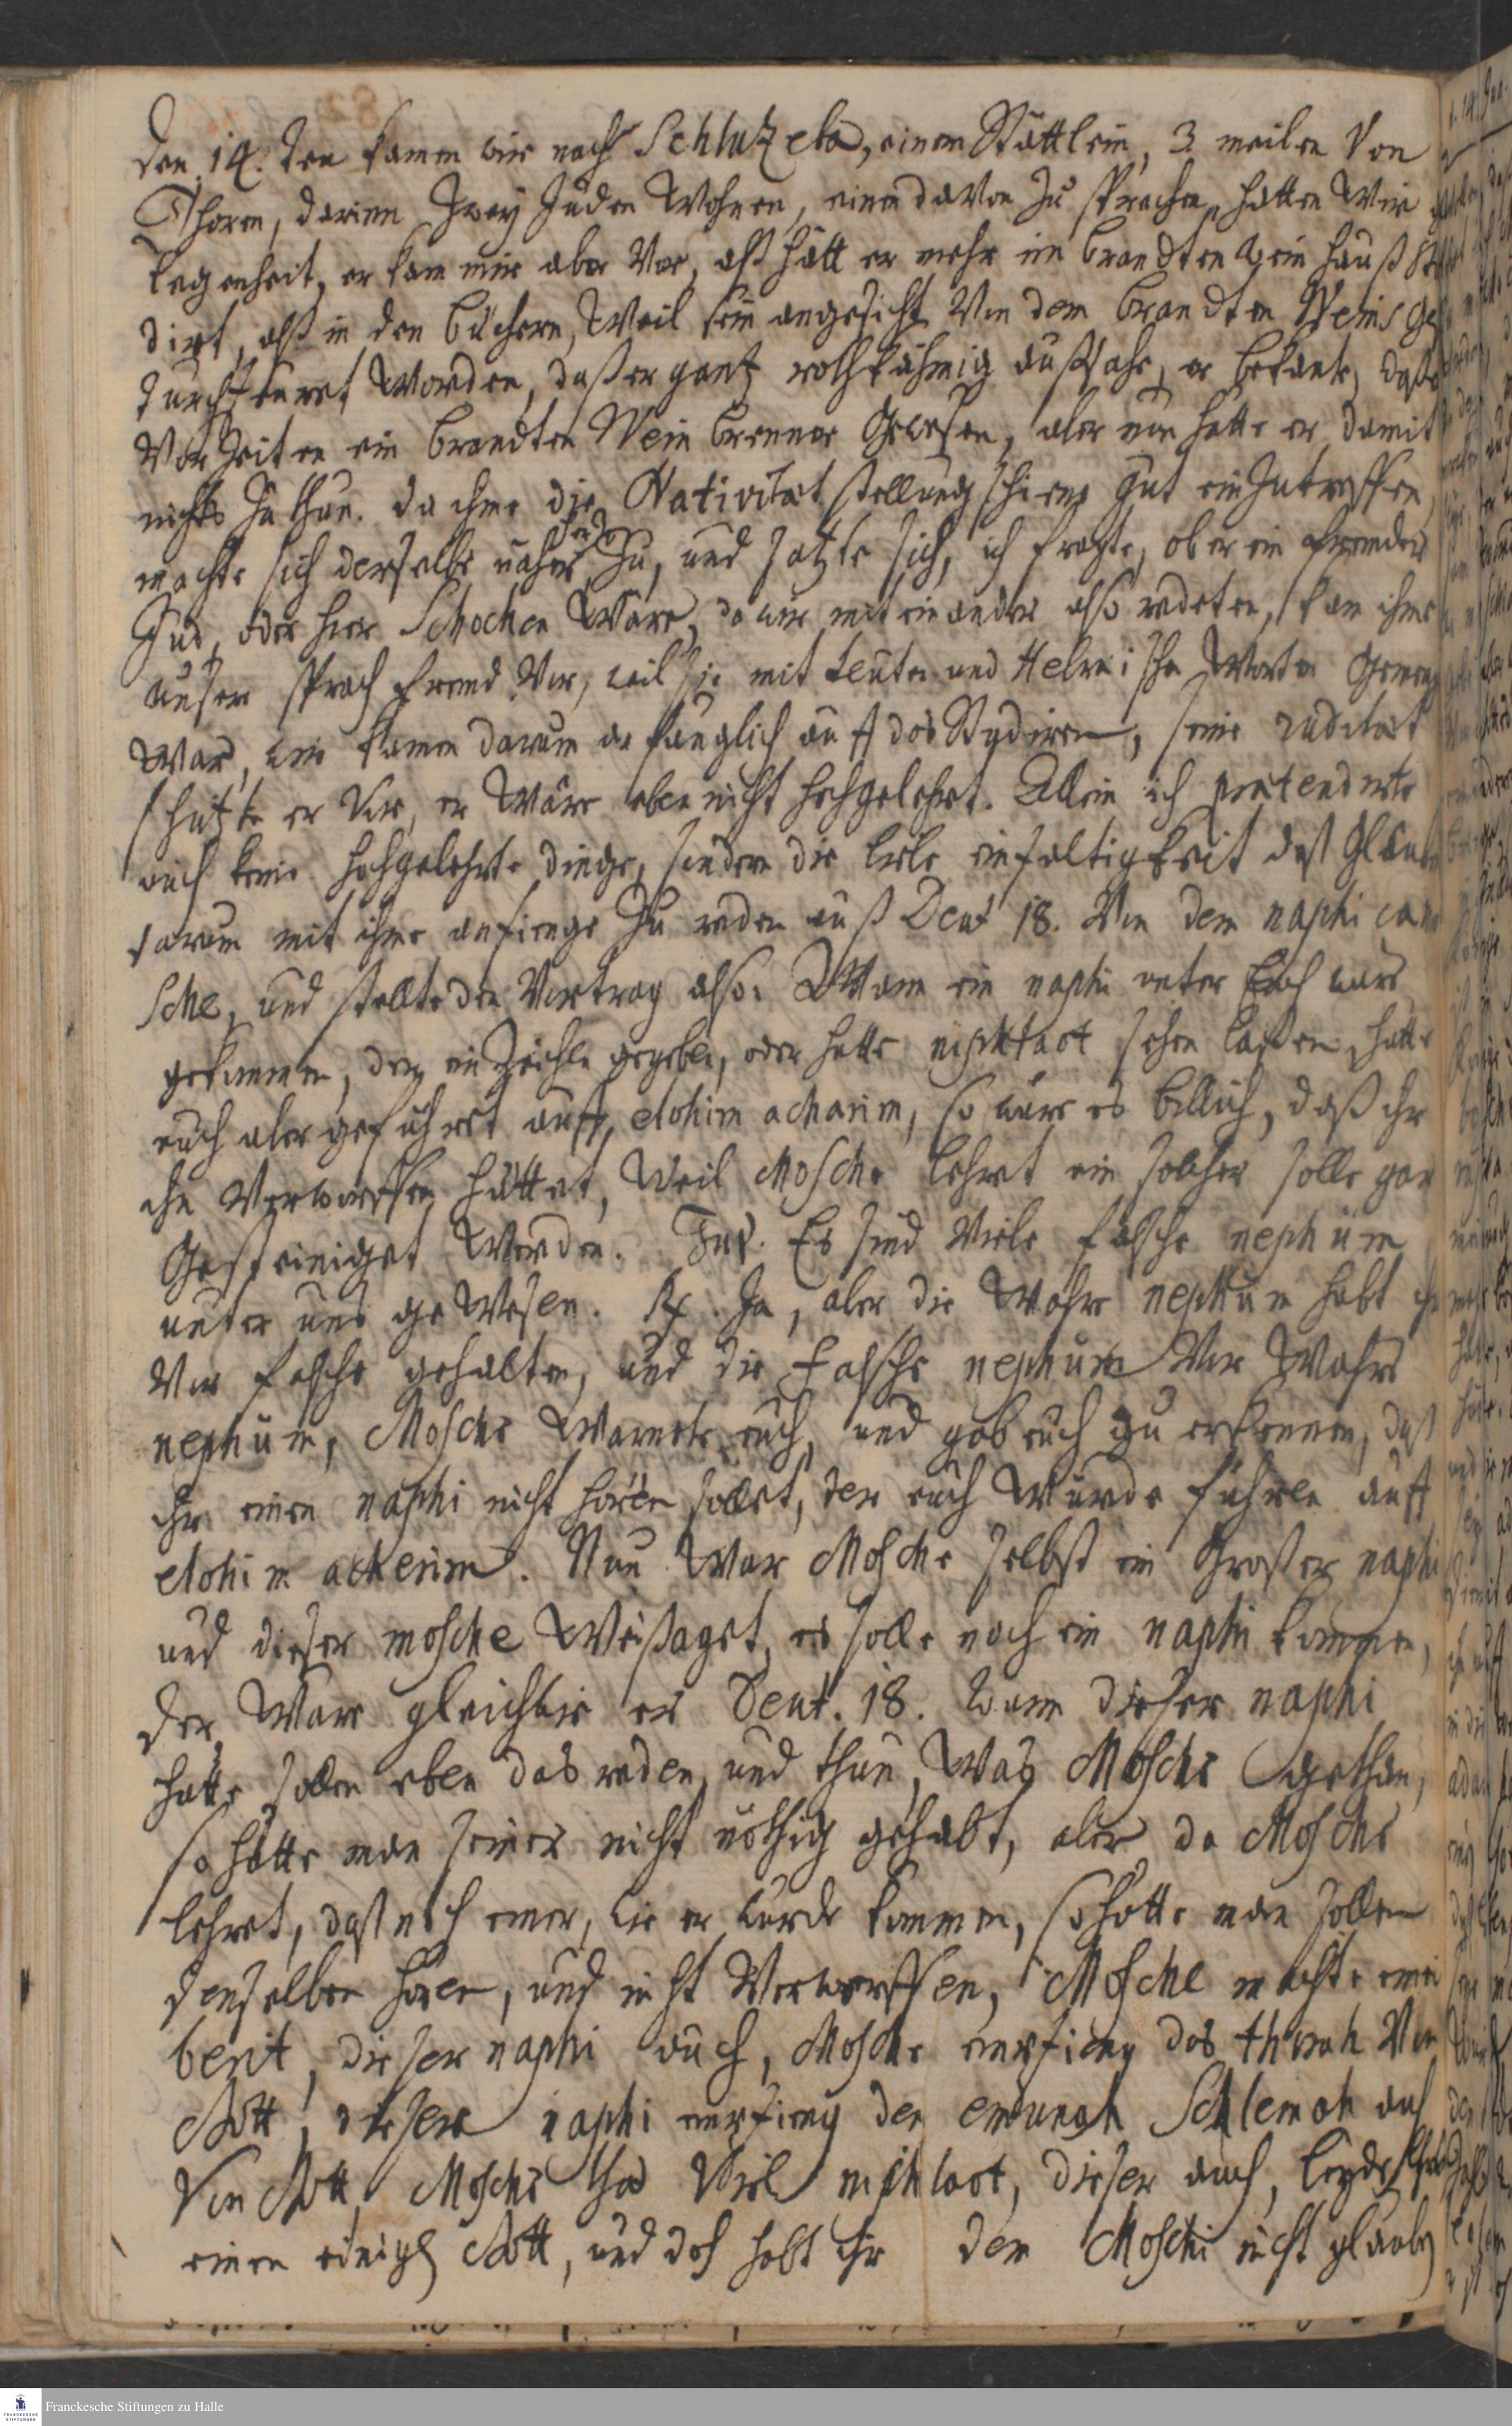 den 14. ten kamen wir nach Schlutzeba, einem Stättlein, 3 meilen Von
Thoren, darinn Zwey Juden Wohnen, einen davon zu sprechen hatten Wir
legenheit, er kam mir aber Vor, alß hätt er mehr im brandten Wein hauß
dirt, alß in den büchern, Weil sein angesicht Von dem brandten Weins
worden, daß er gantz aussahe, er bekante, daß
Vor Zeiten ein brandten Wein brenner Gewesen, aber nun hatte er damit
nichts Zu thun. da ihme die Nativitaet stellung schiene gut einzutreffen,
machte sich derselbe näher Zu, und satzte sich, ich fragte, ob er ein frembder
Jud, oder hier Schochen Wäre, da wir mit einander also redeten, kam ihme
unser sprach fremd Vor, weil sie mit teutsch und Hebreische Worten
War, wir kamen darum anfänglich auff das Studiren, seine ruditaet
schützte er Vor, er Wäre eben nicht hochgelehrt. Allein ich praetendirte
auch keine hochgelehrte dinge, sondern die liebe einfaltigkeit deß
darum mit ihme anfienge Zu reden auß Deut 18. Von dem naphi
sche, und stellte den Vortrag also: Wann ein naphi unter Euch wäre
gekommen, der ein Zeichen gegeben, oder hatte niphlaot sehen lassen, hatte
euch aber geführet auff elohim acharim, so wäre es billich, daß ihr
ihn Verworffen hättet, Weil Mosche lehret ein solcher solle gar
Gesteiniget Werden. Jud. Es sind Viele falsche nephiim
unter uns geWesen. Rx. Ja, aber die Wahre nephiim habt ihr
Vor falsche gehalten, und die falsche nephiim Vor Wahre
nephiim, Mosche Warnete euch, und gab euch zu erkennen, daß
ihr einen naphi nicht hören sollet, der euch Würde führen auff
elohim acherim. Nun War Mosche selbst ein Großer naphi
und dieser mosche Weissaget, es solle noch ein naphi kommen,
der Wäre gleichwie er Deut. 18. Wann dieser naphi
hätte sollen eben das reden, und thun, Was Mosche gethan,
so hätte man seiner nicht nöthig gehabt, aber da Mosche
lehret, daß noch einer, wie er würde kommen, so hätte man sollen
denselben hören, und nicht Verwerffen, Mosche machte einen
berit, dieser naphi auch, Mosche empfieng das thorah Von
Gott, dieser naphi empfieng den emunah Schlemah auch
Von Gott, Mosche that Viel niphlaot, dieser auch, beyde
einen einigen Gott, und doch habt ihr dem Moschi nicht glauben
Franckesche Stiftungen zu Halle